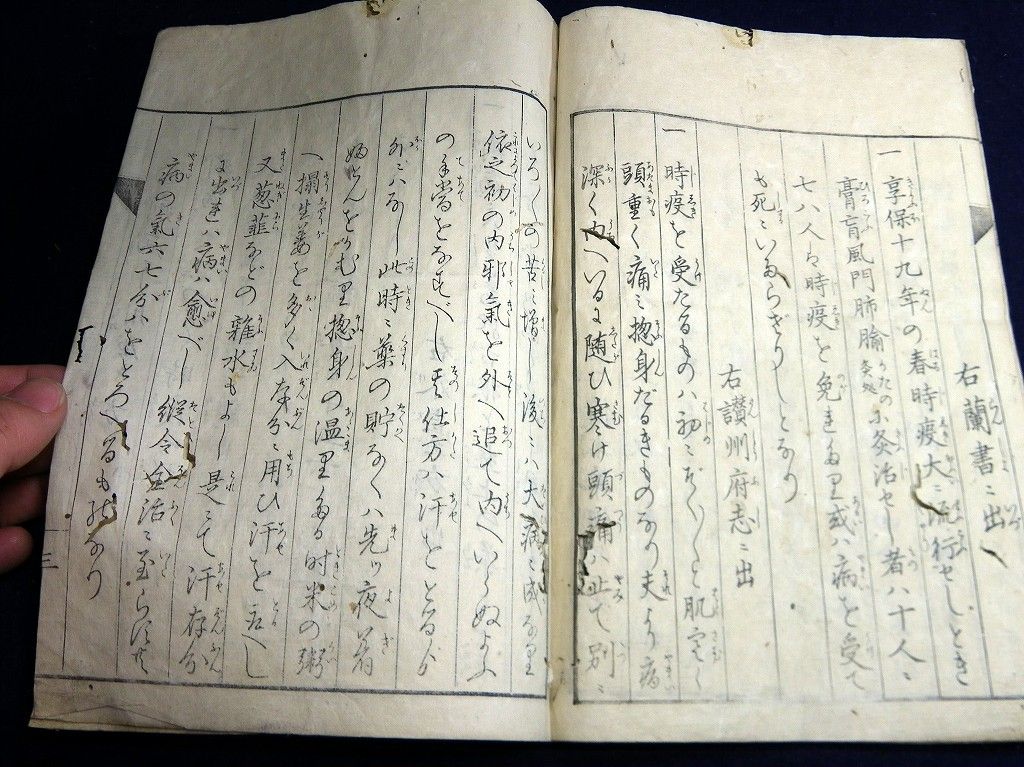 右蘭書ニ出
一 享保十九年の春時疫大ニ流行せしとき
膏肓風門肺腧かたの灸処に灸治せし者八十人ニ
七八人ハ時疫を免れたり或ハ病を受て
も死ニいたらざりしとなり
右讃州府志ニ出
一 時疫を受たるものハ初ニぞくぞくと肌寒く
頭重く痛ミ惣身だるきものなり夫より病
深く内へいるに随ひ寒け頭痛ハ止て別ニ
いろ〱の苦ミ増し後ニハ大病ニ成なり
依之初の内邪氣を外へ追て内へいらぬよふ
の手當をなすべし其仕方ハ汗をとるより
外ハなし此時ニ藥の貯なくハ先ツ夜着
ふとんをかむり惣身の温りたる时米の粥
へ搨生姜を多く入存分ニ用ひ汗を取べし
又葱韮などの雜水もよし是ニて汗存分
に出れハ病ハ愈べし縦令全治ニ至らずとも
病の氣六七分ハをとろへるもの也
三